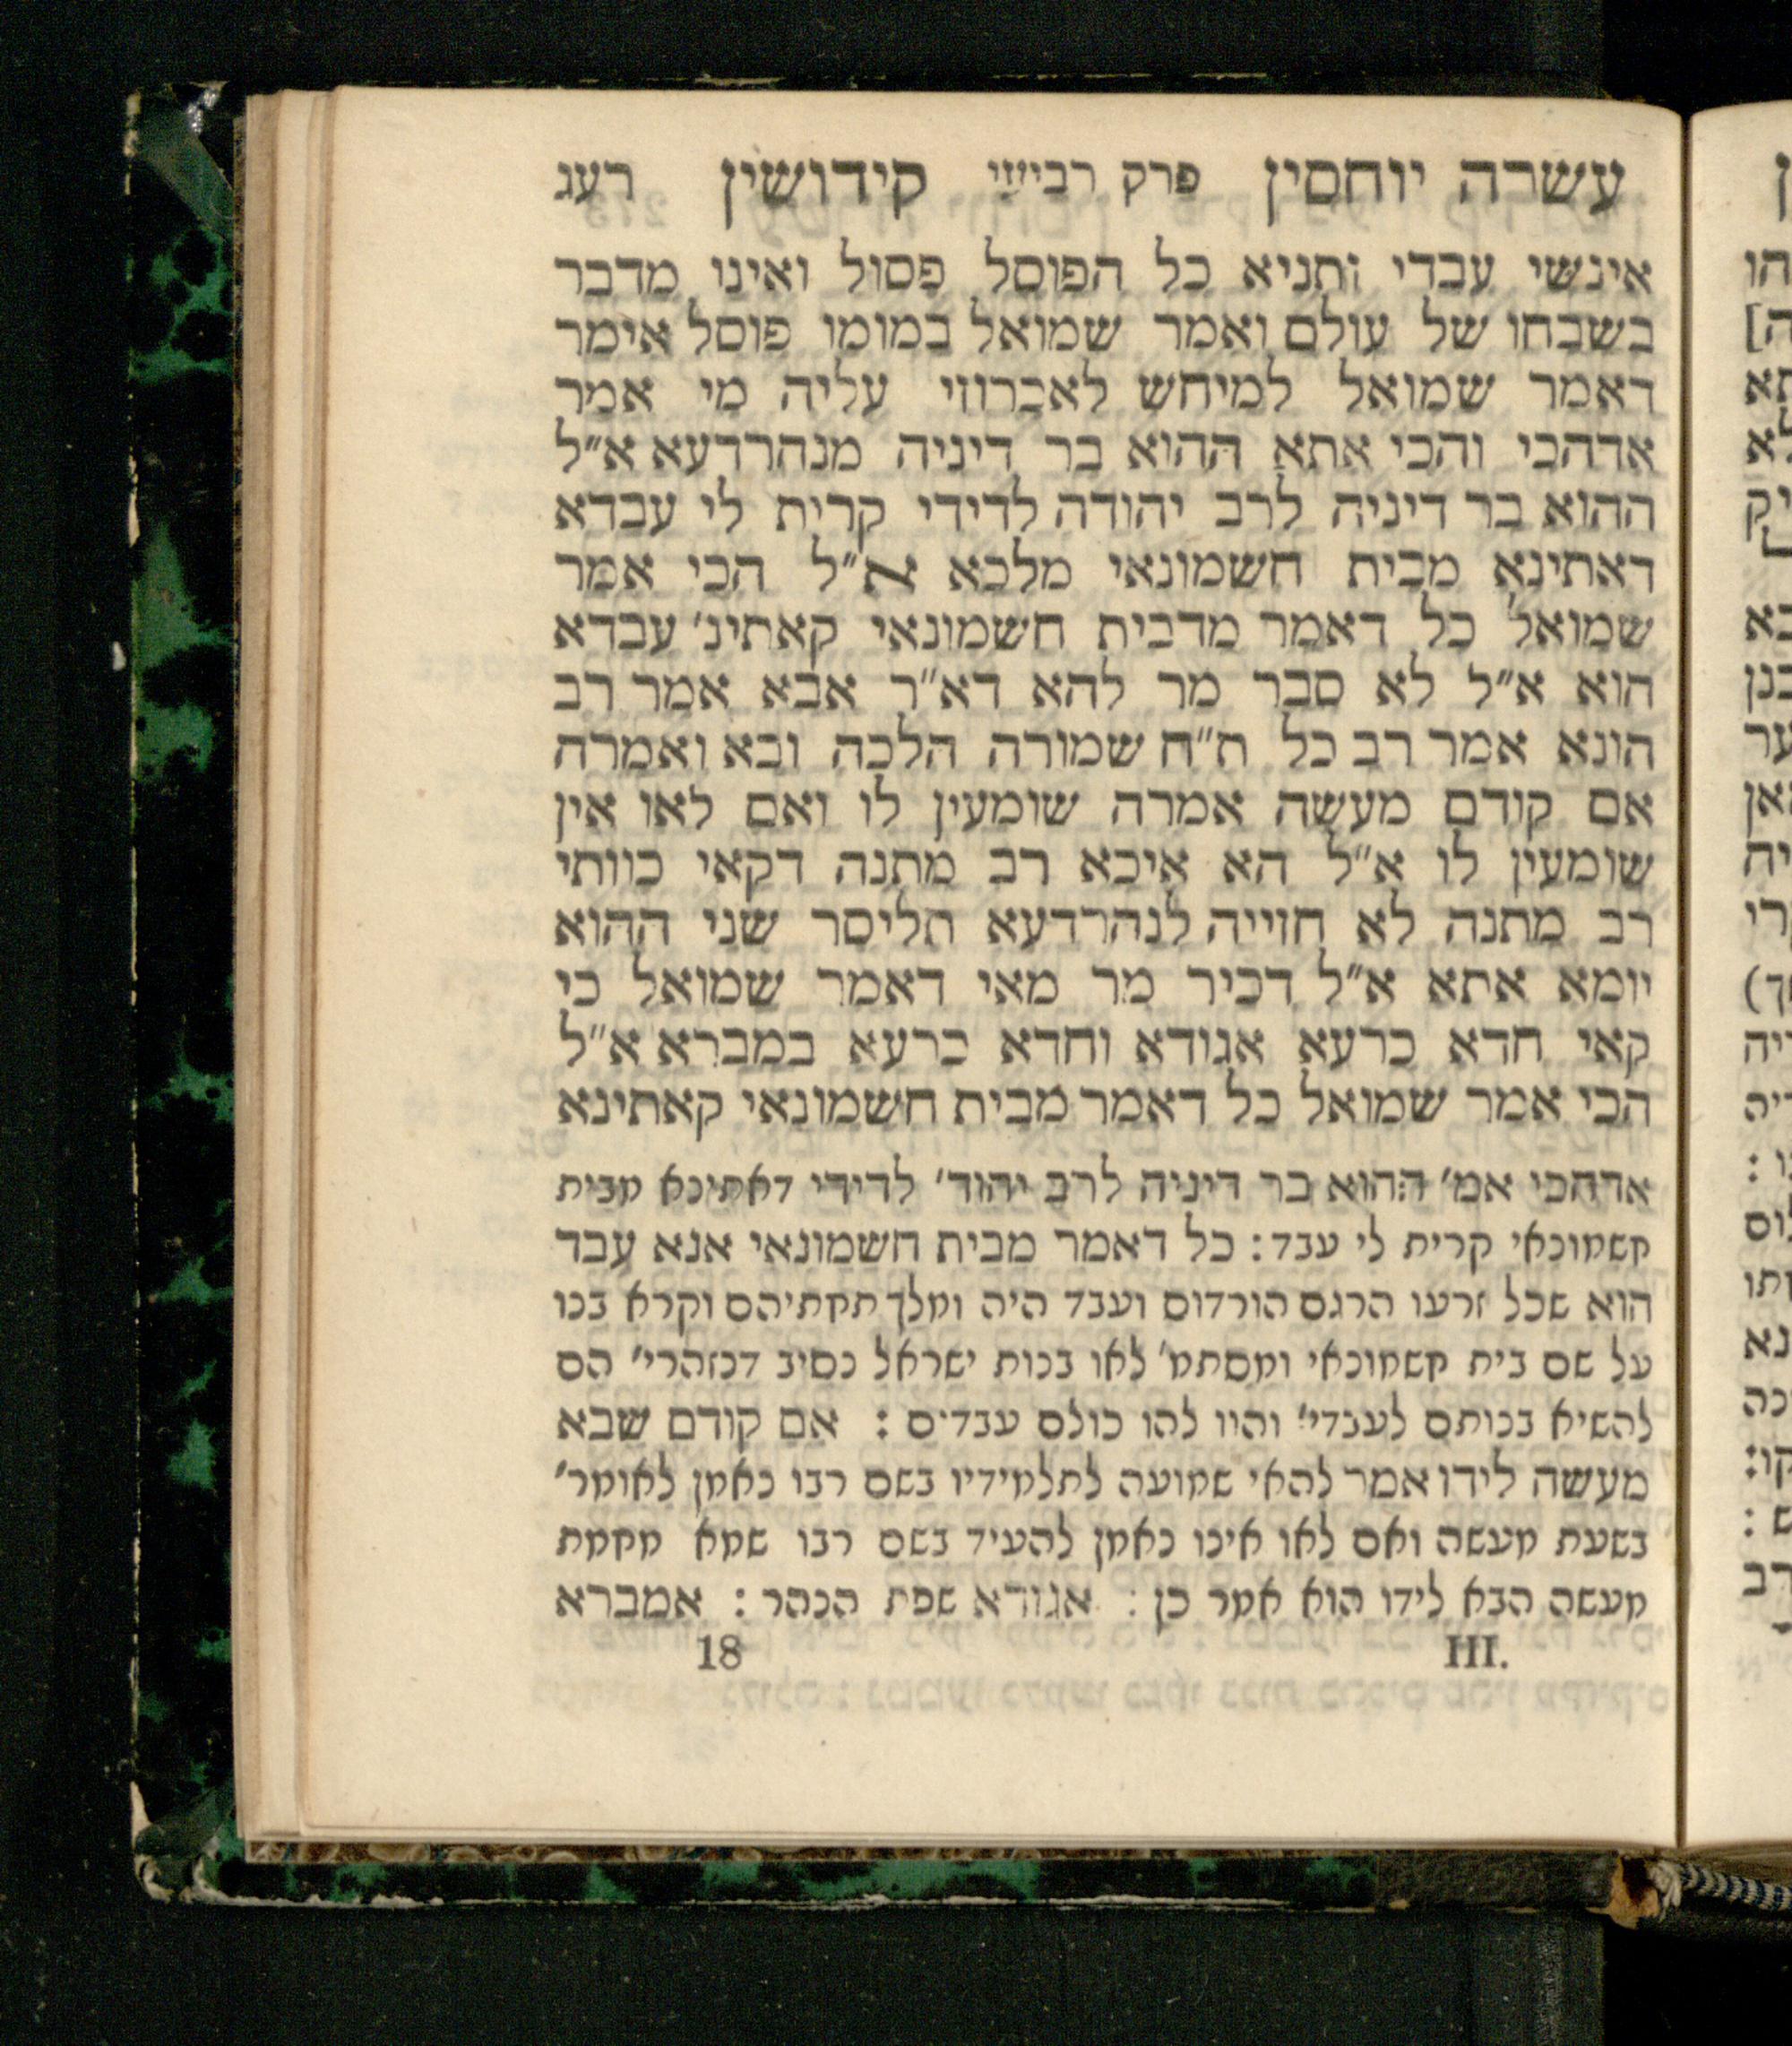 עשרה יוחסין פרק רביעי קידושין רעג
אינשי עבדי ותניא כל הפוסל פסול ואינו מדבר
בשבחו של עולם ואמר שמואל במומו פוסל אימר
דאמר שמואל למיחש לאכרוזי עליה מי אמר
אדהכי והכי אתא ההוא בר דיניה מנהרדעא א״ל
ההוא בר דיניה לרב יהודה לדידי קרית לי עבדא
דאתינא מבית חשמונאי מלכא א״ל הכי אמר
שמואל כל דאמר מדבית חשמונאי קאתינ׳ עבדא
הוא א״ל לא סבר מר להא דא״ר אבא אמר רב
הונא אמר רב כל ת״ח שמורה הלכה ובא ואמרה
אם קודם מעשה אמרה שומעין לו ואם לאו אין
שומעין לו א״ל הא איכא רב מתנה דקאי כוותי
רב מתנה לא חזייה לנהרדעא תליסר שני ההוא
יומא אתא א״ל דכיר מר מאי דאמר שמואל כי
קאי חדא כרעא אגודא וחדא כרעא במברא א״ל
הכי אמר שמואל כל דאמר מבית חשמונאי קאתינא
אדהכי אמ׳ ההוא בר דיניה לרב יהוד׳ לדידי דאתינא מבית
חשמונאי קרית לי עבד: כל דאמר מבית חשמונאי אנא עבד
הוא שכל זרעו הרגם הורדוס ועבד היה ומלך תחתיהם וקרא בנו
על שם בית חשמונאי ומסתמ׳ לאו בנות ישראל נסיב דנזהרי׳ הם
להשיא בנותם לעבדי׳ והוו להו כולם עבדים: אם קודם שבא
מעשה לידו אמר להאי שמועה לתלמידיו בשם רבו נאמן לאומר׳
בשעת מעשה ואם לאו אינו נאמן להעיד בשם רבו שמא מחמת
מעשה הבא לידו הוא אמר כן: אגודא שפת הנהר: אמברא
III. 18